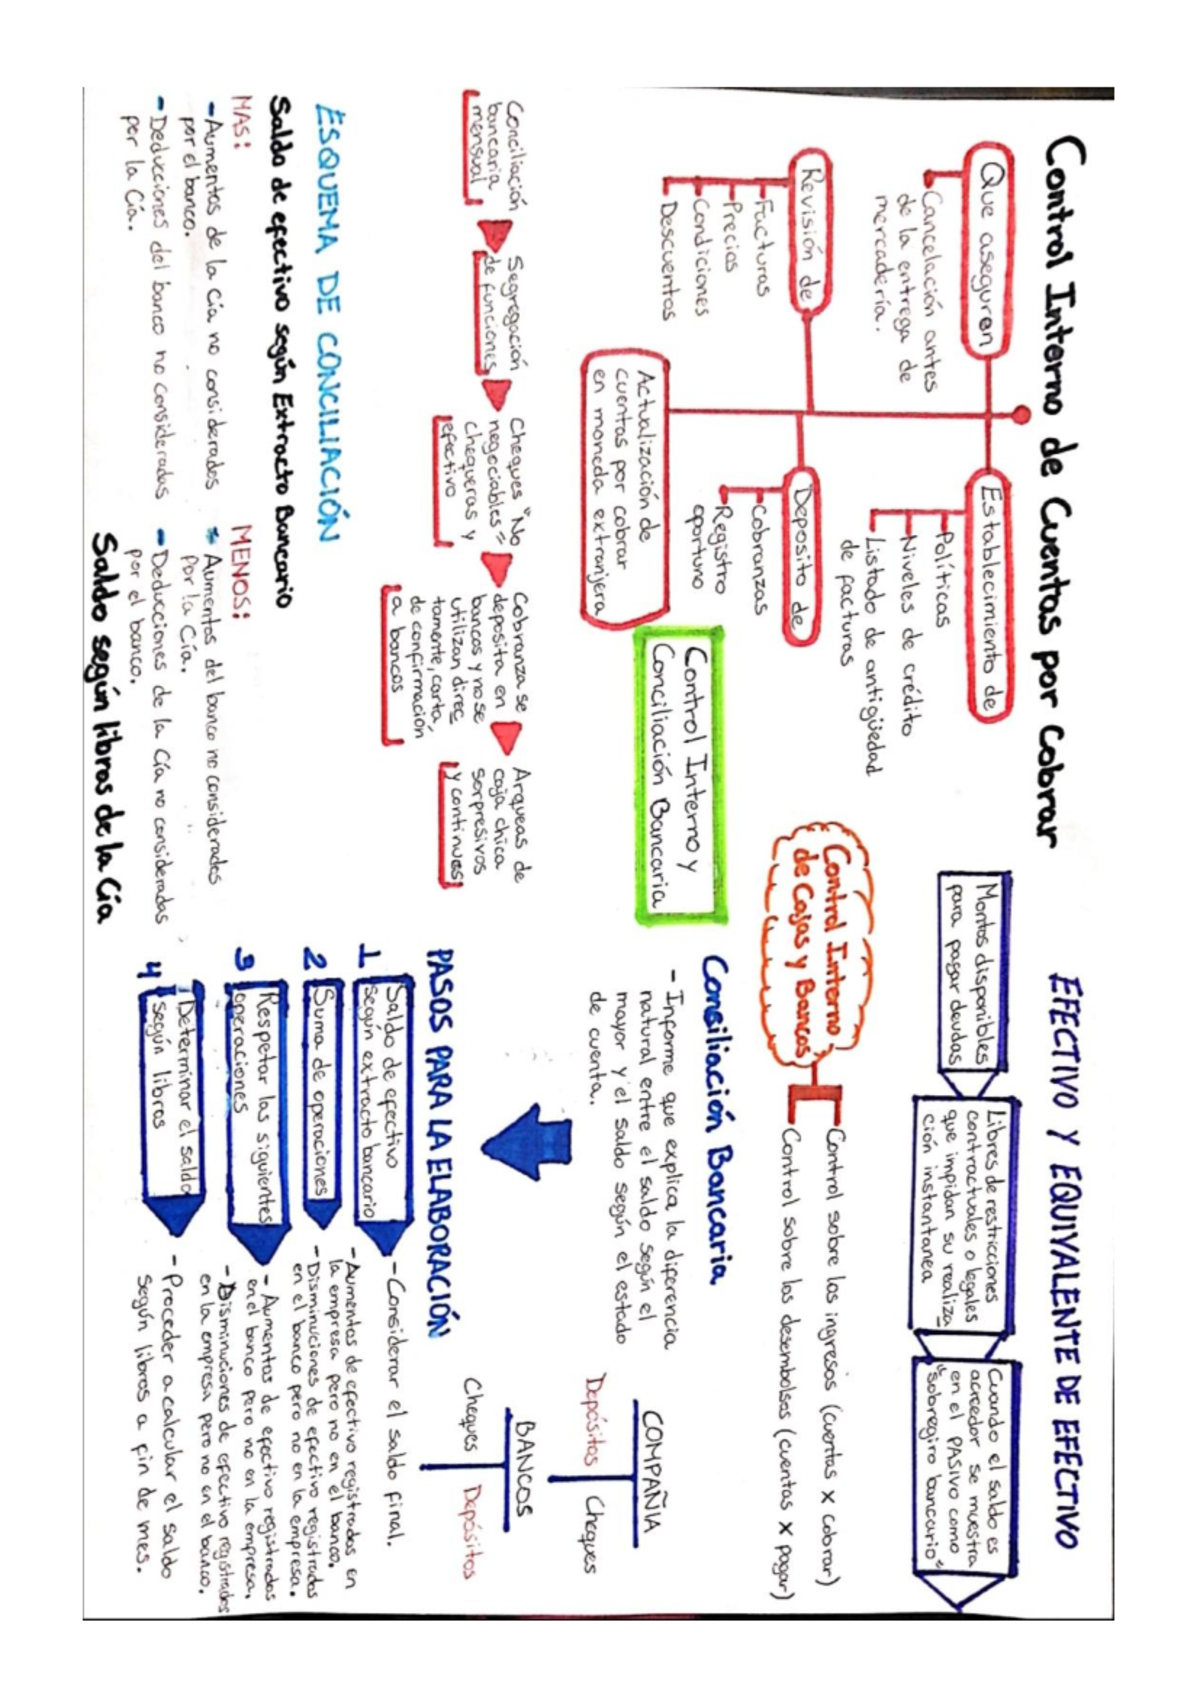 Control Interno de Cuentas por Cobrar
Que aseguren
Cancelación antes
de la entrega de
mercadería.
Establecimiento de
Políticas
Niveles de crédito
Listado de antigüedad
de facturas
Revisión de
Facturas
Precios
Condiciones
Descuentos
Deposito de
Cobranzas
Registro
oportuno
Actualización de
cuentas por cobrar
en moneda extranjera
EFECTIVO Y EQUIVALENTE DE EFECTIVO
Montos disponibles
para pagar deudas
Libres de restricciones
contractuales o legales
que impidan su realiza
ción instantanea
Cuando el saldo es
acreedor se muestra
en el PASIVO como
"sobregiro bancario"
Control Interno
de Cajas y Bancos
Control sobre los ingresos (cuentas x cobrar)
Control sobre los desembolsos (cuentas x pagar)
Control Interno y
Conciliación Bancaria
Conciliación
bancaria
mensual
Segregación
de funciones
Cheques "No
negociables"
chequeras y
efectivo
Cobranza se
deposita en
bancos y no se
utilizan direc
tamente, carta,
de confirmación
a bancos
Arqueas de
caja chica
sorpresivos
y continues
Consiliación Bancaria
- Informe que explica la diferencia
natural entre el saldo según el
mayor y el saldo según el estado
de cuenta.
COMPAÑIA
Depósitos Cheques
BANCOS
Cheques Depósitos
ESQUEMA DE CONCILIACIÓN
Saldo de efectivo según Extracto Bancario
MAS:
- Aumentos de la Cía no considerados
por el banco.
- Deducciones del banco no consideradas
por la Cía.
MENOS:
* Aumentos del banco no considerados
Por la Cía.
- Deducciones de la Cía no consideradas
por el banco.
Saldo según libros de la Cía
PASOS PARA LA ELABORACIÓN
1 Saldo de efectivo
según extracto bancario
- Considerar el saldo final.
2 Suma de operaciones
- Aumentos de efectivo registrados en
la empresa pero no en el banco.
- Disminuciones de efectivo registradas
en el banco pero no en la empresa.
3 Respetar las siguientes
operaciones
- Aumentos de efectivo registrados
en el banco pero no en la empresa.
- Disminuciones de efectivo registrados
en la empresa pero no en el banco.
4 Determinar el saldo
según libros
- Proceder a calcular el saldo
según libros a fin de mes.